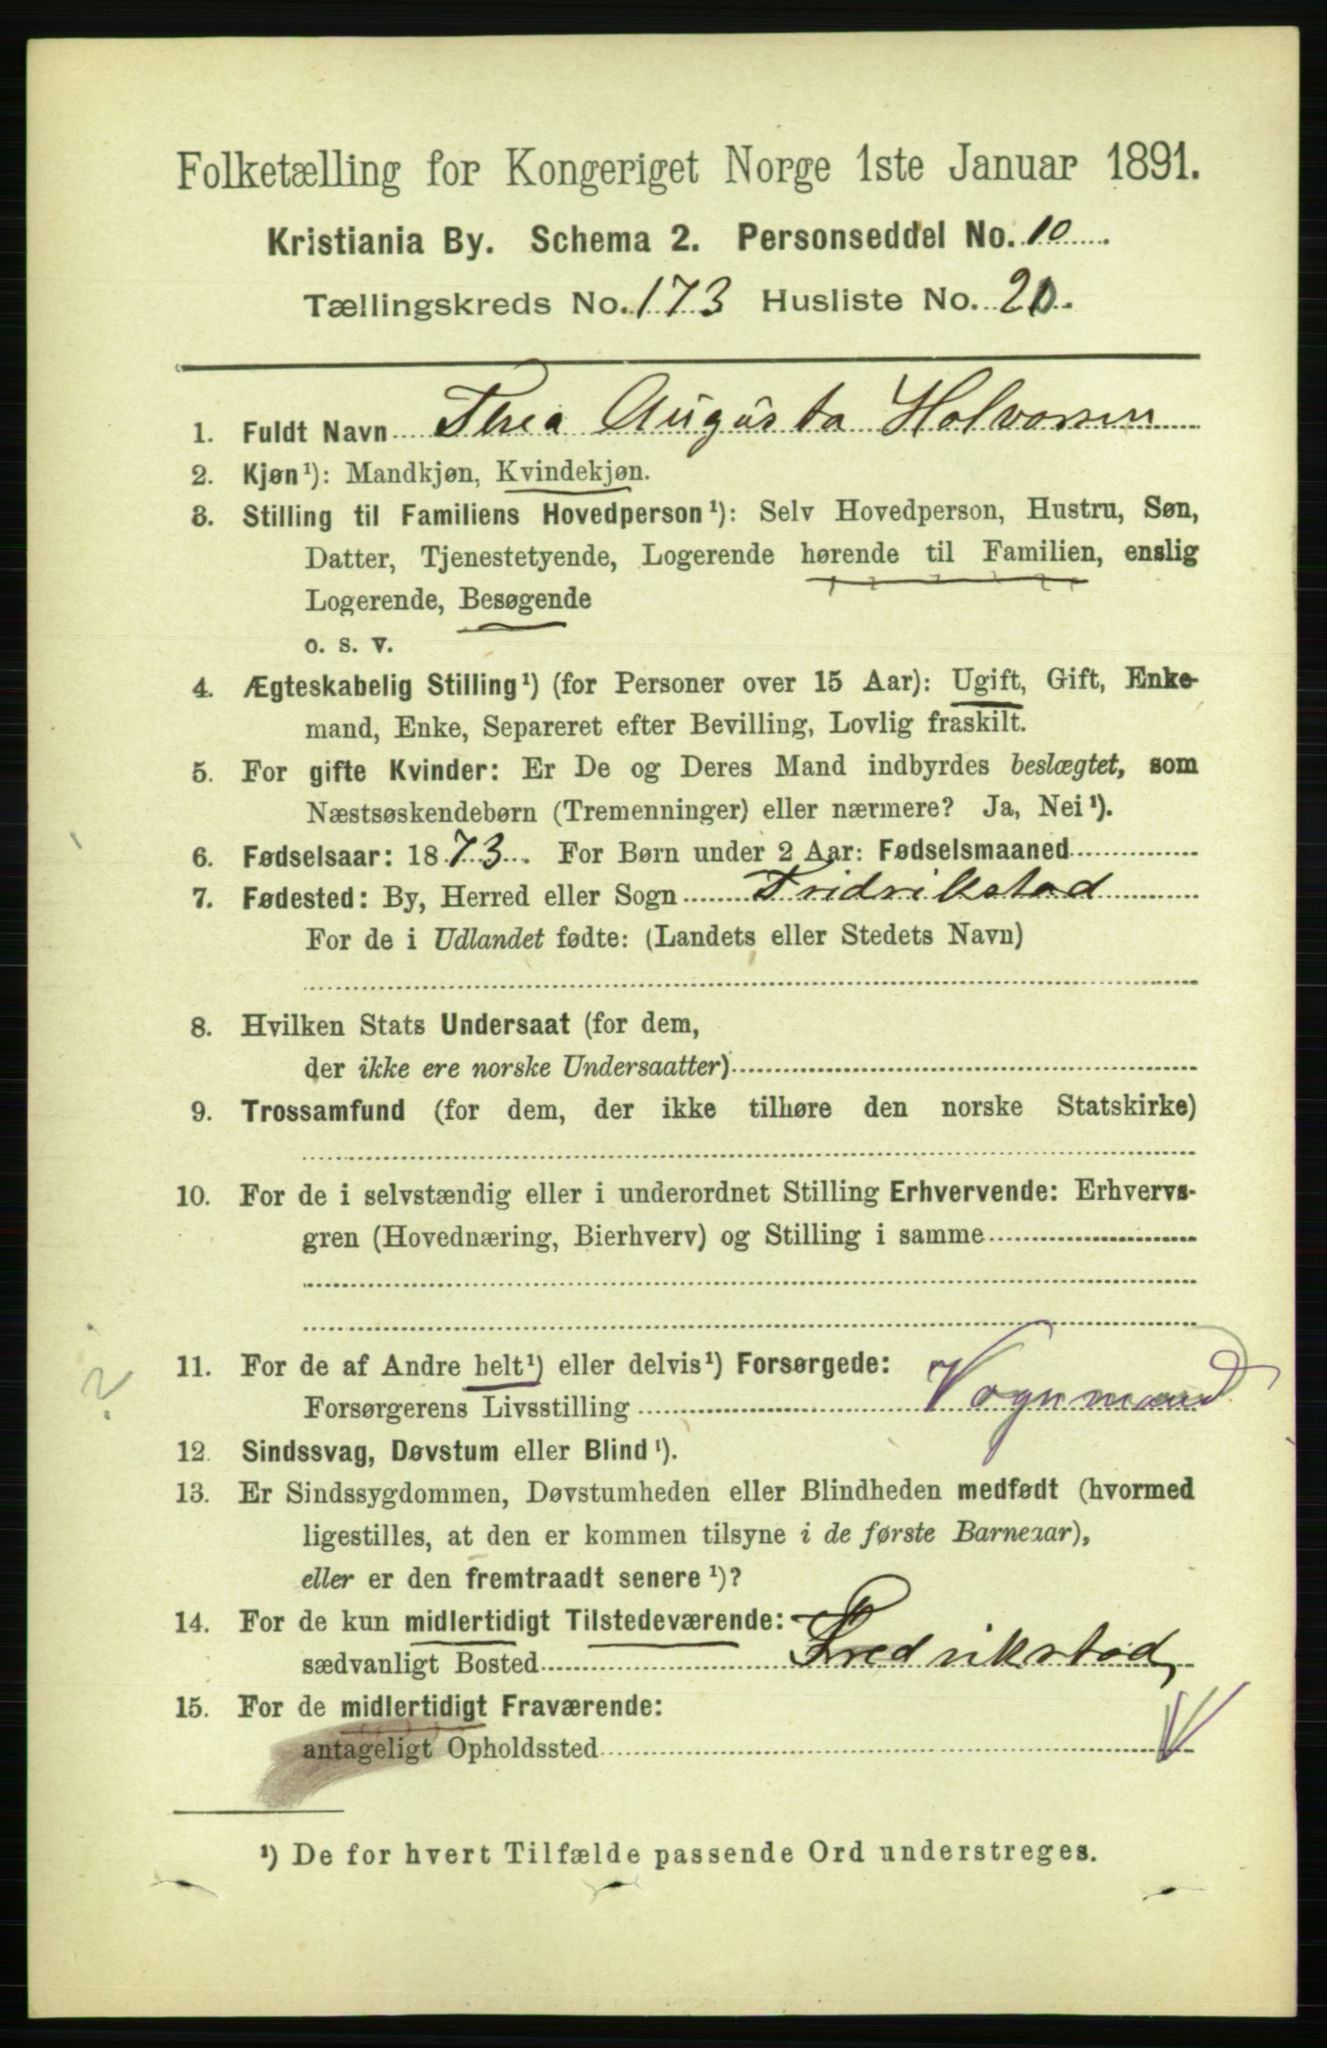 Folketælling for Kongeriget Norge 1ste Januar 1891.
Kristiania By. Schema 2. Personseddel No. 10
Tællingskreds No. 173 Husliste No. 20.
1. Fuldt Navn Thea Augusta Halvorsen
2. Kjøn¹): Mandkjøn, Kvindekjøn.
3. Stilling til Familiens Hovedperson¹): Selv Hovedperson, Hustru, Søn,
Datter, Tjenestetyende, Logerende hørende til Familien, enslig
Logerende, Besøgende
o. s. v.
4. Ægteskabelig Stilling¹) (for Personer over 15 Aar): Ugift, Gift, Enke-
mand, Enke, Separeret efter Bevilling, Lovlig fraskilt.
5. For gifte Kvinder: Er De og Deres Mand indbyrdes beslægtet, som
Næstsøskendebørn (Tremenninger) eller nærmere? Ja, Nei¹).
6. Fødselsaar: 1873. For Børn under 2 Aar: Fødselsmaaned
7. Fødested: By, Herred eller Sogn Fridrikstad
For de i Udlandet fødte: (Landets eller Stedets Navn)
8. Hvilken Stats Undersaat (for dem,
der ikke ere norske Undersaatter)
9. Trossamfund (for dem, der ikke tilhøre den norske Statskirke)
10. For de i selvstændig eller i underordnet Stilling Erhvervende: Erhvervs-
gren (Hovednæring, Bierhverv) og Stilling i samme
11. For de af Andre helt¹) eller delvis¹) Forsørgede:
Forsørgerens Livsstilling Vognmand
12. Sindssvag, Døvstum eller Blind¹).
13. Er Sindssygdommen, Døvstumheden eller Blindheden medfødt (hvormed
ligestilles, at den er kommen tilsyne i de første Barneaar),
eller er den fremtraadt senere¹)?
14. For de kun midlertidigt Tilstedeværende:
sædvanligt Bosted Fredrikstad
15. For de midlertidigt Fraværende:
antageligt Opholdssted
¹) De for hvert Tilfælde passende Ord understreges.